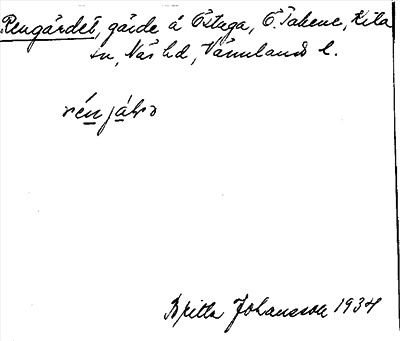 Rengärdet, gärde å Östaga, Ö. Takene, Kila
sn, Näs hd, Värmlands l.
Britta Johansson 1934